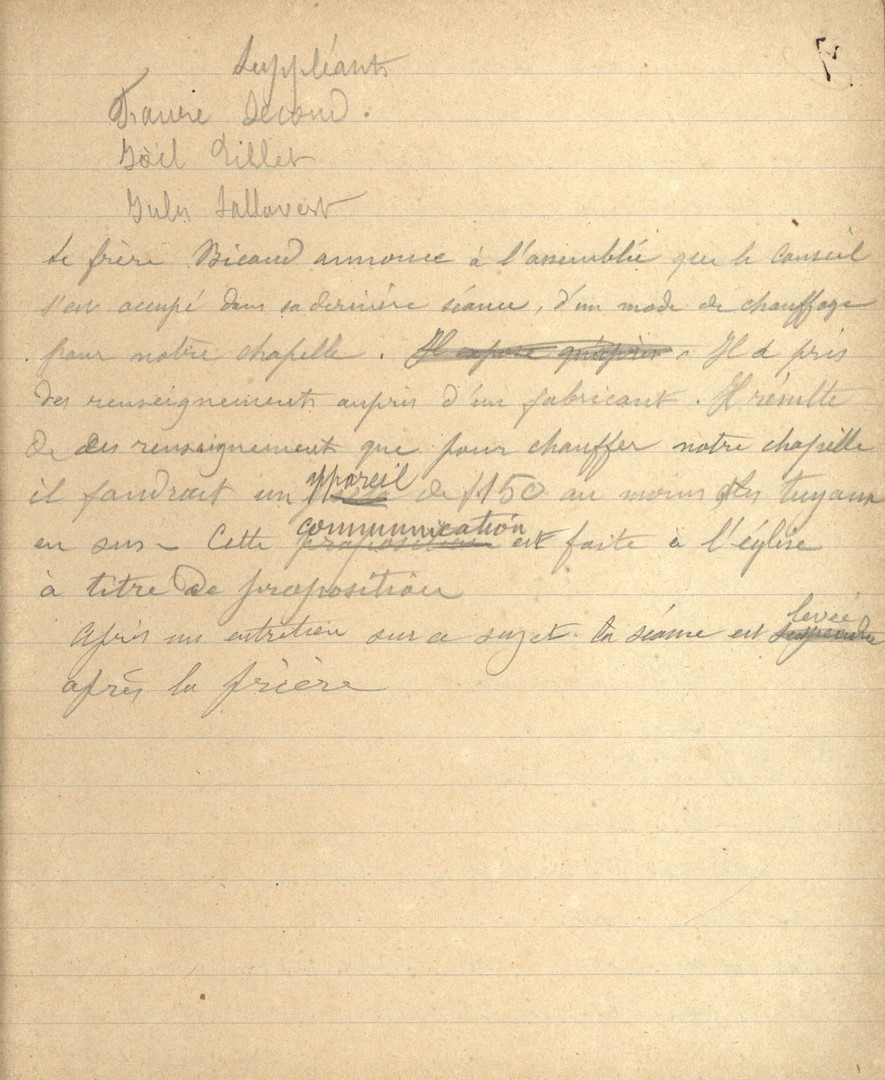 7
Suppléants
Faure Second.
Joël Liblet
Jules Sallavert
Le frère Bicaud annonce à l'assemblée que le Conseil
s'est occupé dans sa dernière séance, d'un mode de chauffage
pour notre chapelle. Il expose qu'après Il a pris
des renseignements auprès d'un fabricant. Il résulte
de ces renseignement que pour chauffer notre chapelle
il faudrait un appareil de 150 au moins les tuyaux
en sus - Cette proposition communication est faite à l'église
à titre de proposition
Après un entretien sur ce sujet la séance est suspendue levée
après la prière